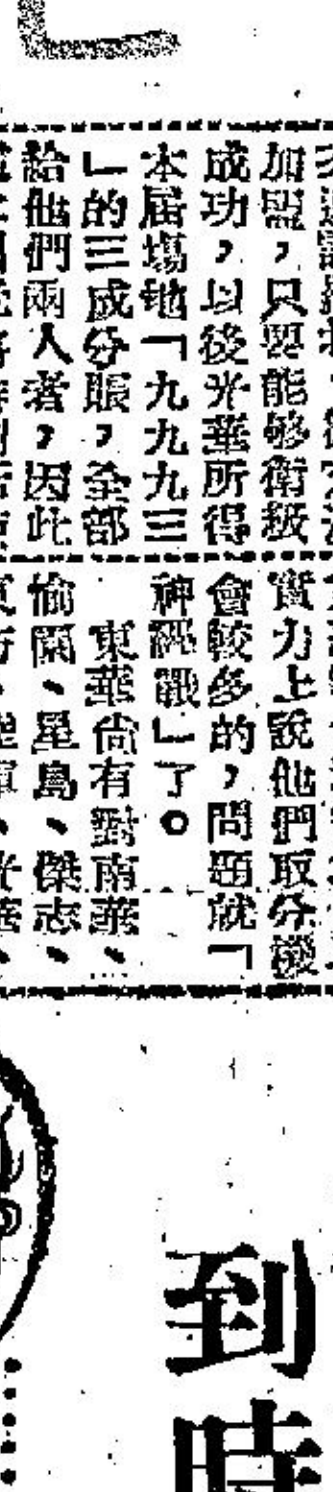 加盟，只要能够衛級
成功，以後光華所得
本屆塲地「九九九三
」的三成分賬，全部
給他們兩人者，因此
實力上說他們取分機
會較多的，問題就「
神經戰」了。
東華尙有對南華、
愉園、星島、傑志、
到時